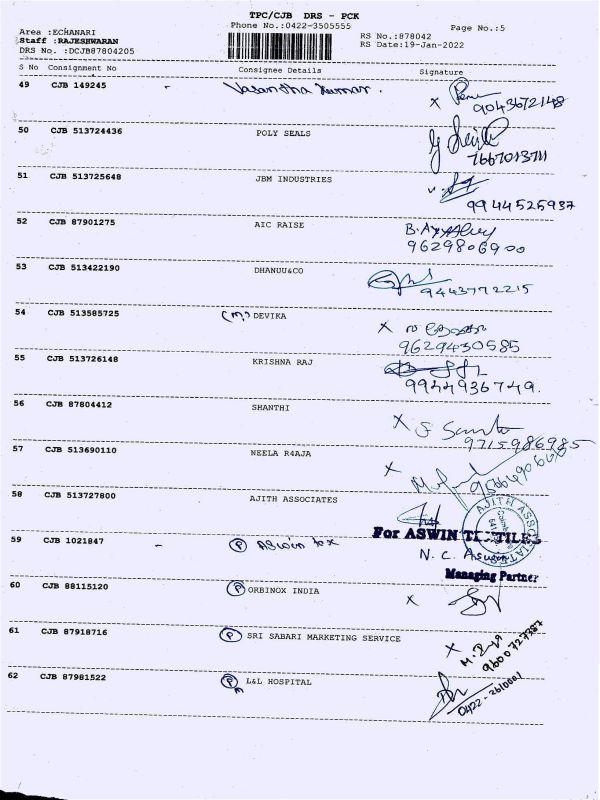 TPC/CJB DRS - PCK
Phone No.:0422-3505555
Page No.:5
Area :ECHANARI
Staff :RAJESHWARAN
DRS No. :DCJB87804205
RS No.:878042
RS Date:19-Jan-2022
S No Consignment No Consignee Details Signature
49 CJB 149245 - Vasantha Kumar.
x 9043672148
50 CJB 513724436 POLY SEALS
7667013711
51 CJB 513725648 JBM INDUSTRIES
9944525937
52 CJB 87901275 AIC RAISE B.
9629806900
53 CJB 513422190 DHANUU&CO
9443772215
54 CJB 513585725 (M) DEVIKA x
9629430585
55 CJB 513726148 KRISHNA RAJ
9944936749.
56 CJB 87804412 SHANTHI
x
9715986985
57 CJB 513690110 NEELA R4AJA x
58 CJB 513727800 AJITH ASSOCIATES
AJITH ASSOCIATES
For ASWIN TEXTILES
59 CJB 1021847 - (P) Aswin tex N. C.
Managing Partner
60 CJB 88115120 (P) ORBINOX INDIA x
61 CJB 87918716 (P) SRI SABARI MARKETING SERVICE x
9600727387
62 CJB 87981522 (P) L&L HOSPITAL
m
0422-2610001